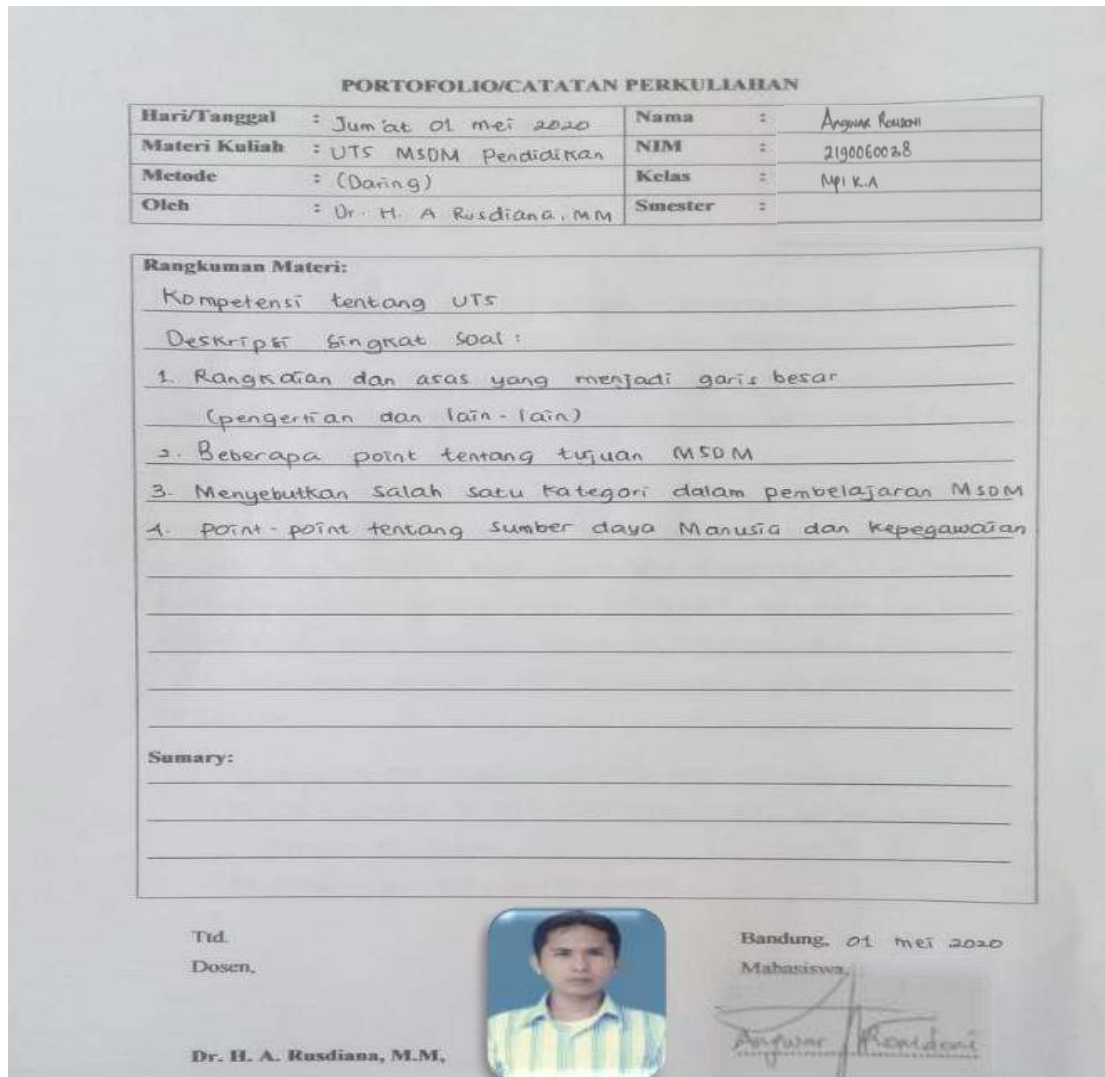 PORTOFOLIO/CATATAN PERKULIAHAN
Hari/Tanggal : Jum'at 01 mei 2020 Nama :
Materi Kuliah : UTS MSDM Pendidikan NIM : 2190060038
Metode : (Daring) Kelas : MPI K.A
Oleh : Dr. H. A Rusdiana, MM Smester :
Rangkuman Materi:
Kompetensi tentang UTS
Deskripsi singkat soal :
1. Rangkaian dan asas yang menjadi garis besar
(pengertian dan lain-lain)
2. Beberapa point tentang tujuan MSDM
3. Menyebutkan salah satu kategori dalam pembelajaran MSDM
4. point-point tentang sumber daya Manusia dan kepegawaian
Sumary:
Ttd. Bandung, 01 mei 2020
Dosen, Mahasiswa,
Dr. H. A. Rusdiana, M.M,